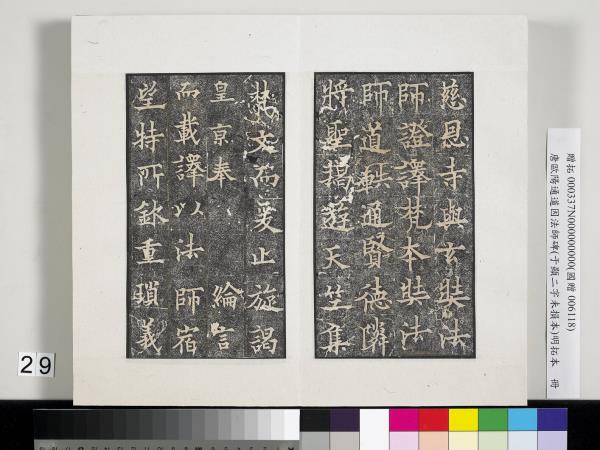 慈恩寺與玄奘法
師證譯梵本奘法
師道軼通賢德隣
將聖搞遊天竺集
梵文而爰止旋謁
皇京奉 綸言
而載譯以法師宿
望特所欽重瑣義
贈拓 000337N000000000(國贈 006118)
唐歐陽通道因法師碑(于顯二字未損本)明拓本 冊
29